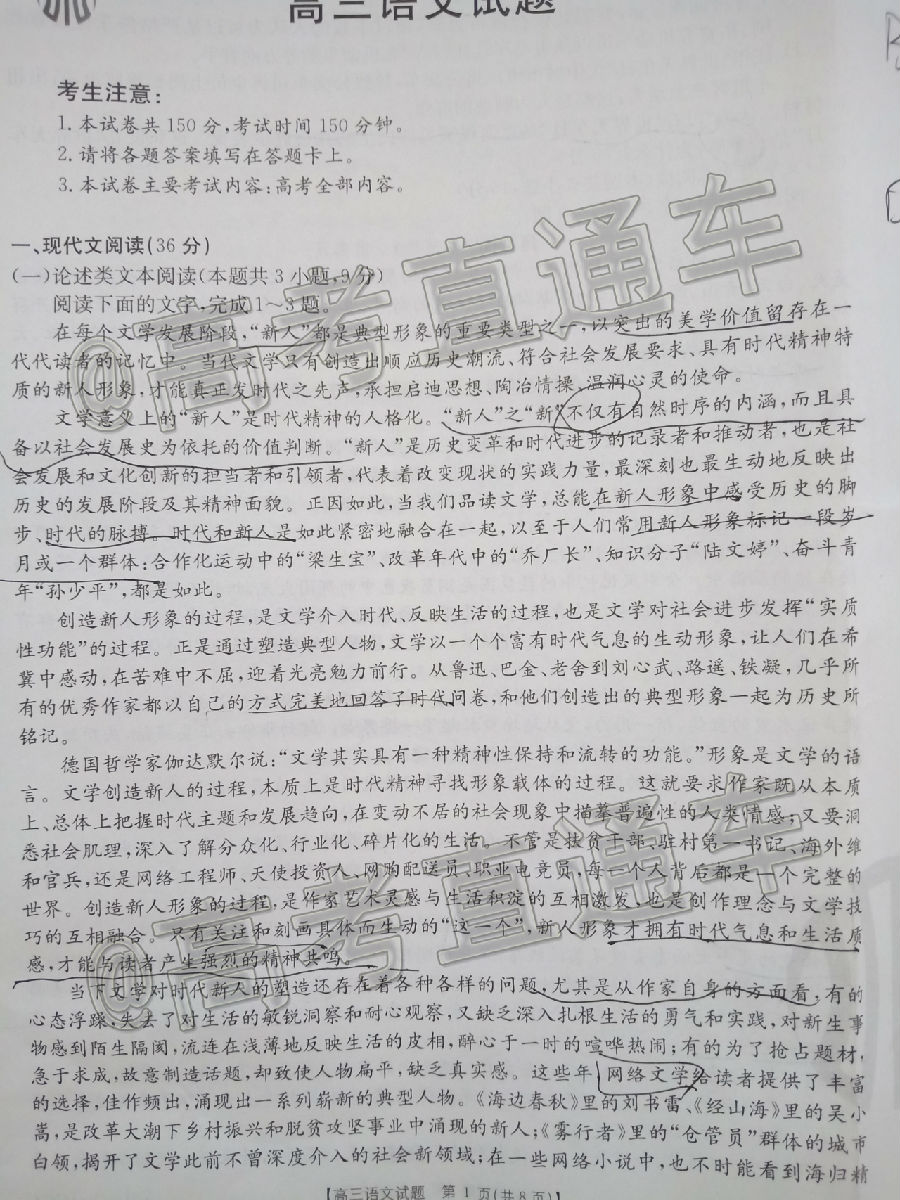 高三语文试题
考生注意:
1.本试卷共150分,考试时间150分钟。
2.请将各题答案填写在答题卡上。
3.本试卷主要考试内容:高考全部内容。
一、现代文阅读(36分)
(一)论述类文本阅读(本题共3小题,9分)
阅读下面的文字,完成1~3题。
在每个文学发展阶段,“新人”都是典型形象的重要类型之一,以突出的美学价值留存在一
代代读者的记忆中。当代文学只有创造出顺应历史潮流、符合社会发展要求、具有时代精神特
质的新人形象,才能真正发时代之先声,承担启迪思想、陶冶情操、温润心灵的使命。
文学意义上的“新人”是时代精神的人格化。“新人”之“新”不仅有自然时序的内涵,而且具
备以社会发展史为依托的价值判断。“新人”是历史变革和时代进步的记录者和推动者,也是社
会发展和文化创新的担当者和引领者,代表着改变现状的实践力量,最深刻也最生动地反映出
历史的发展阶段及其精神面貌。正因如此,当我们品读文学,总能在新人形象中感受历史的脚
步、时代的脉搏。时代和新人是如此紧密地融合在一起,以至于人们常用新人形象标记一段岁
月或一个群体:合作化运动中的“梁生宝”、改革年代中的“乔厂长”、知识分子“陆文婷”、奋斗青
年“孙少平”,都是如此。
创造新人形象的过程,是文学介入时代、反映生活的过程,也是文学对社会进步发挥“实质
性功能”的过程。正是通过塑造典型人物,文学以一个个富有时代气息的生动形象,让人们在希
冀中感动,在苦难中不屈,迎着光亮勉力前行。从鲁迅、巴金、老舍到刘心武、路遥、铁凝,几乎所
有的优秀作家都以自己的方式完美地回答了时代问卷,和他们创造出的典型形象一起为历史所
铭记。
德国哲学家伽达默尔说:“文学其实具有一种精神性保持和流转的功能。”形象是文学的语
言。文学创造新人的过程,本质上是时代精神寻找形象载体的过程。这就要求作家既从本质
上、总体上把握时代主题和发展趋向,在变动不居的社会现象中描摹普遍性的人类情感;又要洞
悉社会肌理,深入了解分众化、行业化、碎片化的生活。不管是扶贫干部、驻村第一书记、海外维
和官兵,还是网络工程师、天使投资人、网购配送员、职业电竞员,每一个人背后都是一个完整的
世界。创造新人形象的过程,是作家艺术灵感与生活积淀的互相激发,也是创作理念与文学技
巧的互相融合。只有关注和刻画具体而生动的“这一个”,新人形象才拥有时代气息和生活质
感,才能与读者产生强烈的精神共鸣。
当下文学对时代新人的塑造还存在着各种各样的问题,尤其是从作家自身的方面看,有的
心态浮躁,失去了对生活的敏锐洞察和耐心观察,又缺乏深入扎根生活的勇气和实践,对新生事
物感到陌生隔阂,流连在浅薄地反映生活的皮相,醉心于一时的喧哗热闹;有的为了抢占题材,
急于求成,故意制造话题,却致使人物扁平,缺乏真实感。这些年,网络文学给读者提供了丰富
的选择,佳作频出,涌现出一系列崭新的典型人物。《海边春秋》里的刘书雷、《经山海》里的吴小
蒿,是改革大潮下乡村振兴和脱贫攻坚事业中涌现的新人;《雾行者》里的“仓管员”群体的城市
白领,揭开了文学此前不曾深度介入的社会新领域;在一些网络小说中,也不时能看到海归精
【高三语文试题 第1页(共8页)】
@高考直通车
@高考直通车